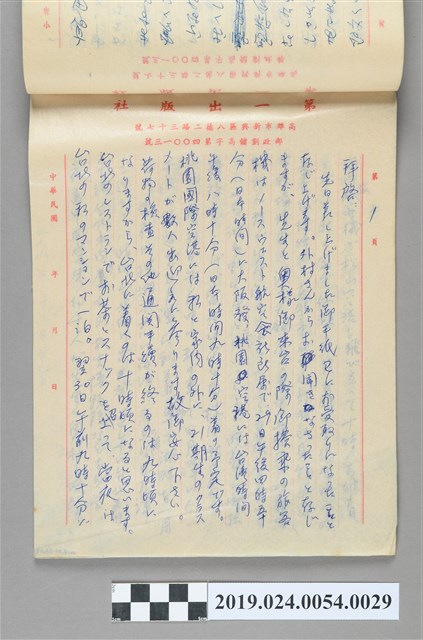 第一出版社
高雄市新興區八德二路三十七號
郵政劃撥高字第四〇〇一三號
第 1 頁
拝啓、
先日差し上げました御手紙已にお受取りになった事と
存じ上げます。外村さんからお聞きなさった事と存じ
ますが、先生と奥様御来台の際御搭乗の旅客
機はノースウエスト航空会社所属で29日午後四時五十
分(日本時間)に大阪發、桃園空港には台湾時間
午後八時十分(日本時間九時十分)着の予定です。
桃園国際空港には私と家内の外に、21期生のクラス
メートが数人出迎えに参ります故御安心下さい。
荷物の検査その他通関手續が終るのは九時頃に
なりますから、台北に着くのは十時頃になると思います。
台北のレストランでお茶とスナックを
台北の私のマンションで一泊。翌30日午前九時十分に
中華民國 年 月 日
2019.024.0054.0029